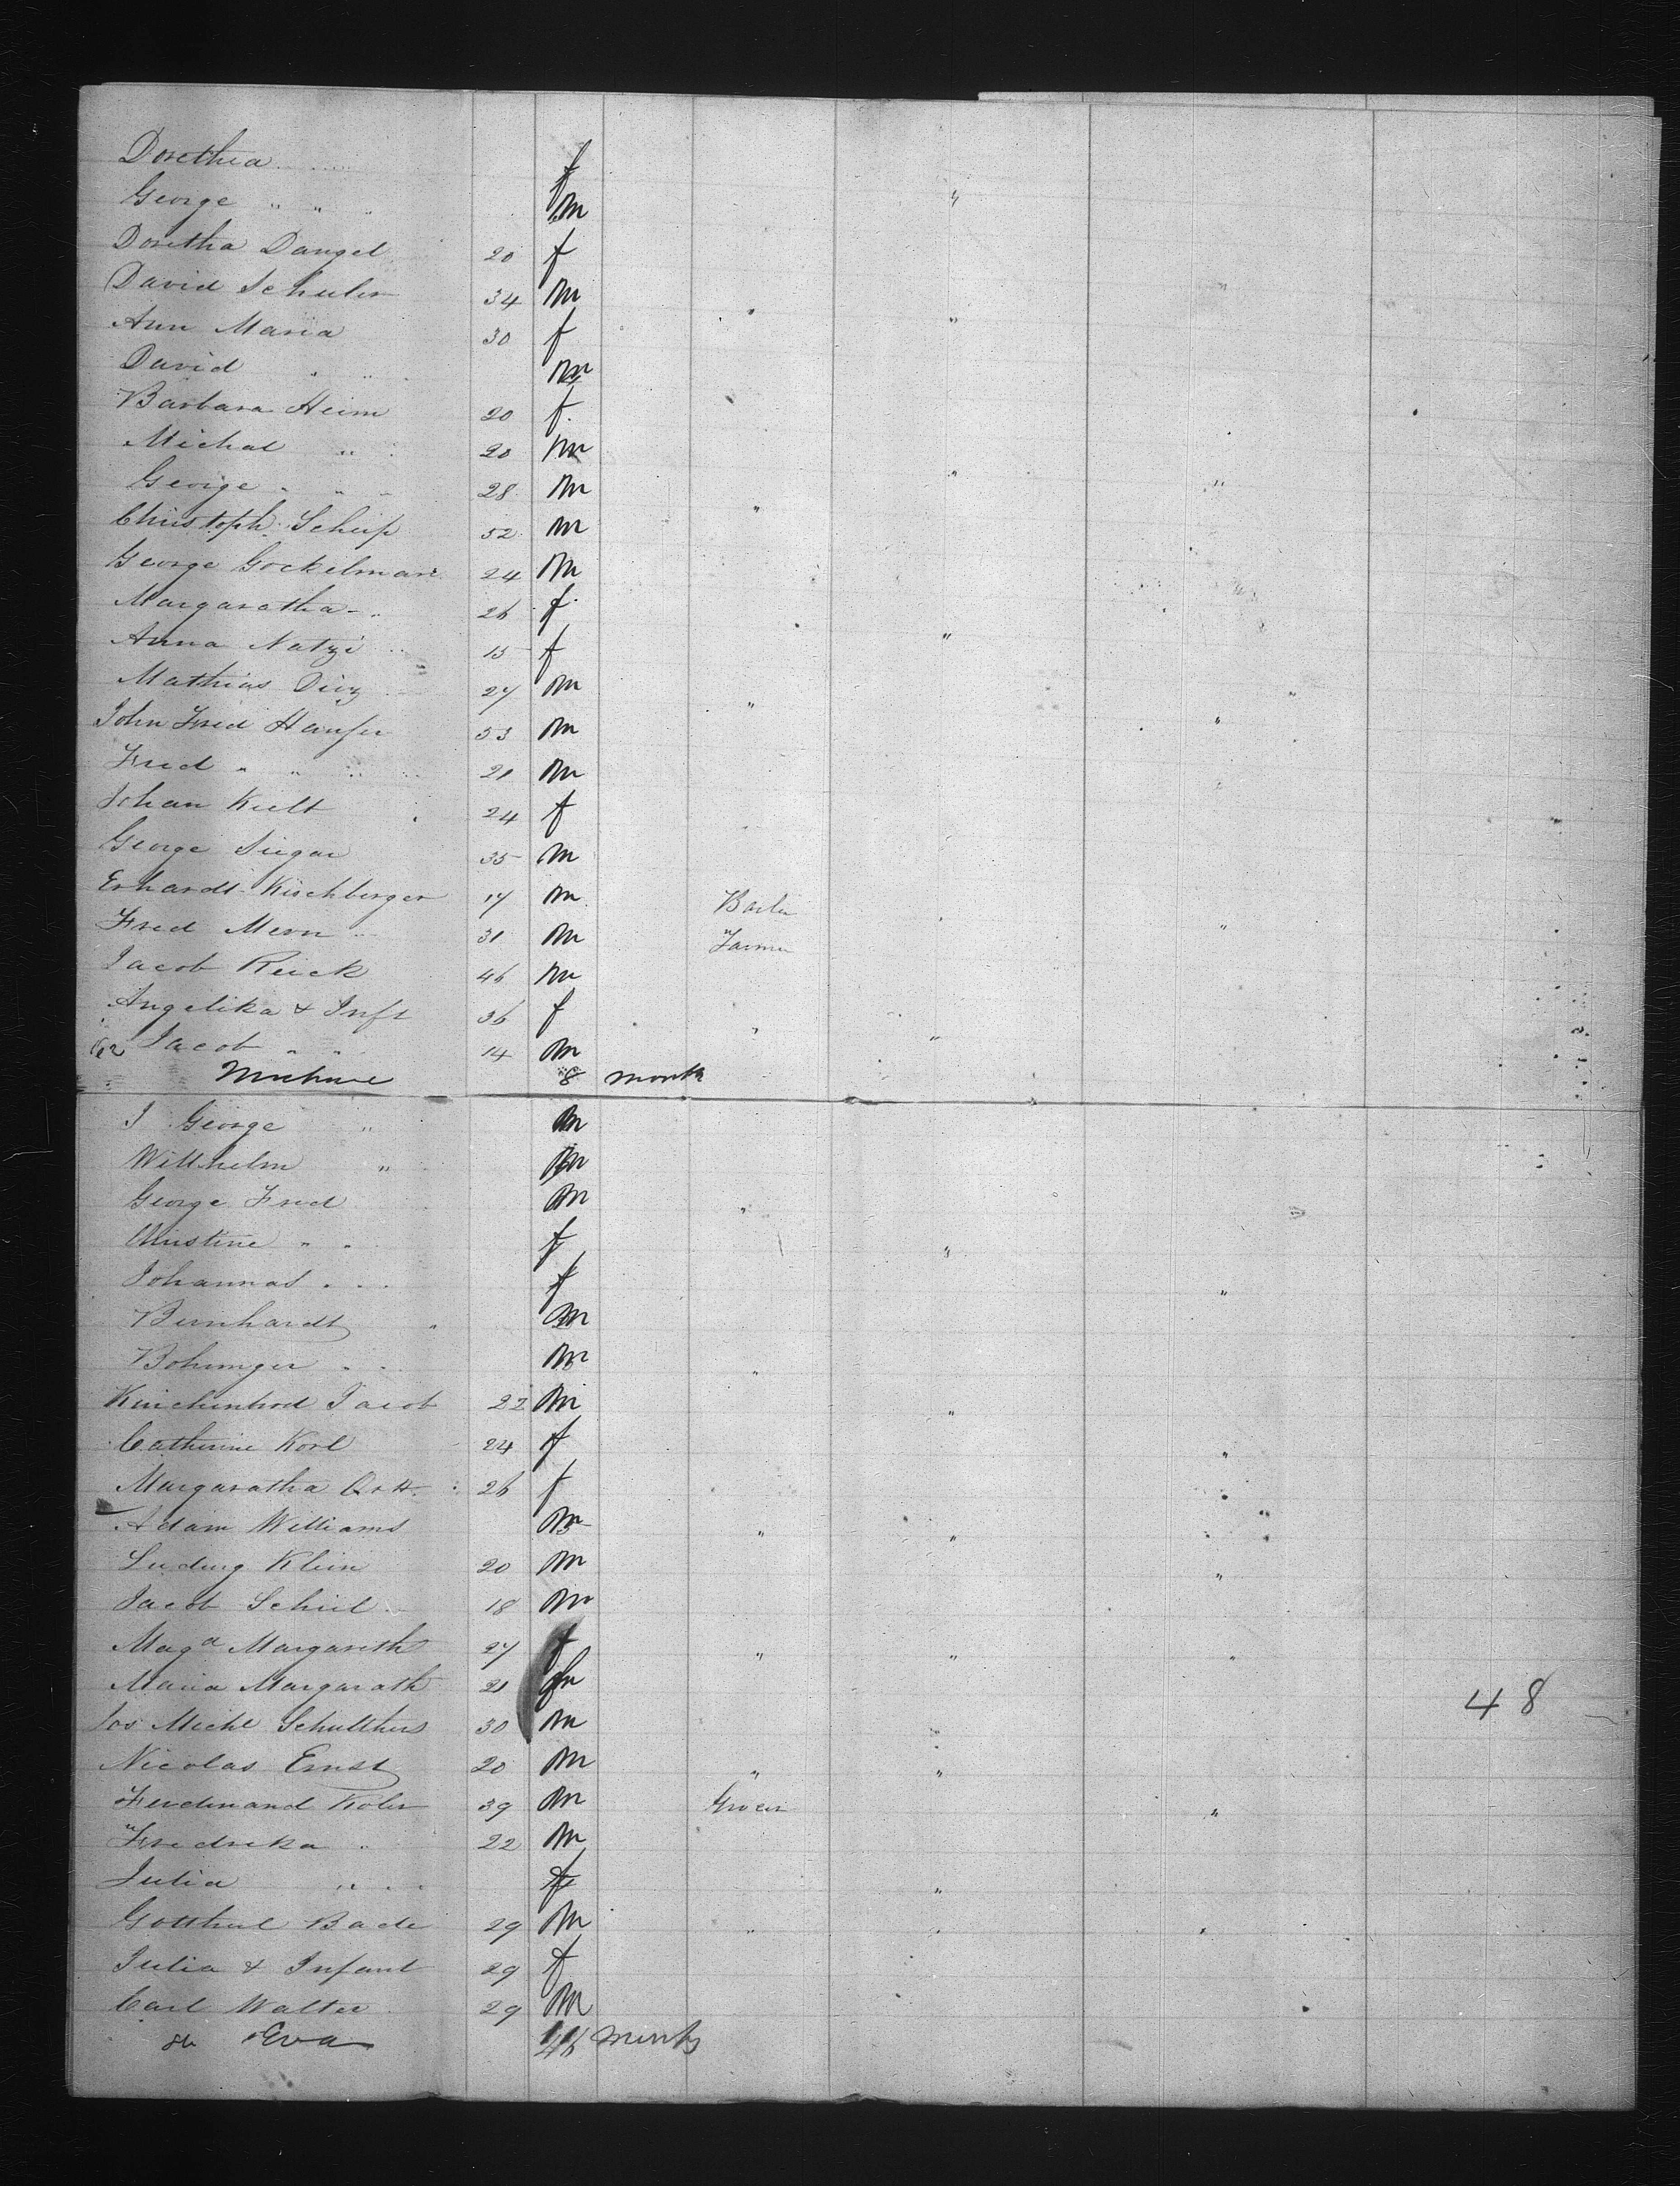 Dorethea f
George " " m "
Doretha Dangel 20 f
David Schuler 34 m
Ann Maria 30 f " "
David " " m
Barbara Heim 20 f
Michal " 20 m
George " " " 28 m " "
Christoph 52 m "
George Gockelman 24 m
Margaratha 26 f
Anna Natzi 15 f "
Mathias 27 m "
John Fred Hauser 53 m " "
Fred " " 21 m
Johan 24 f
George 35 m
Erhardt Kirchberger 17 m
Fred Mern 31 m Farmer "
Jacob Reick 46 m
Angelika & Inft 36 f
Jacob " " 14 m " "
8 month
J George " m
Willhelm " m
George Fred m "
Christine " " f "
Johannas " " f "
Bernhardt " m
" " m "
Jacob 22 m "
Catherine Korl 24 f "
Margaratha 26 f
Adam Williams m " "
Ludwig Klein 20 m "
Jacob Schiel 18 m
Maga Margareth 27 f " " "
Maria Margarath 21
48
Michl Schulthers 30 m
Nicolas Ernst 20 m " "
Ferdinand Koler 39 m Grocer "
Fredreka " 22 m
Julia " " " f "
Bade 29 m " " "
Julia & Infant 29 f
Carl Walter 29 m
Eva months